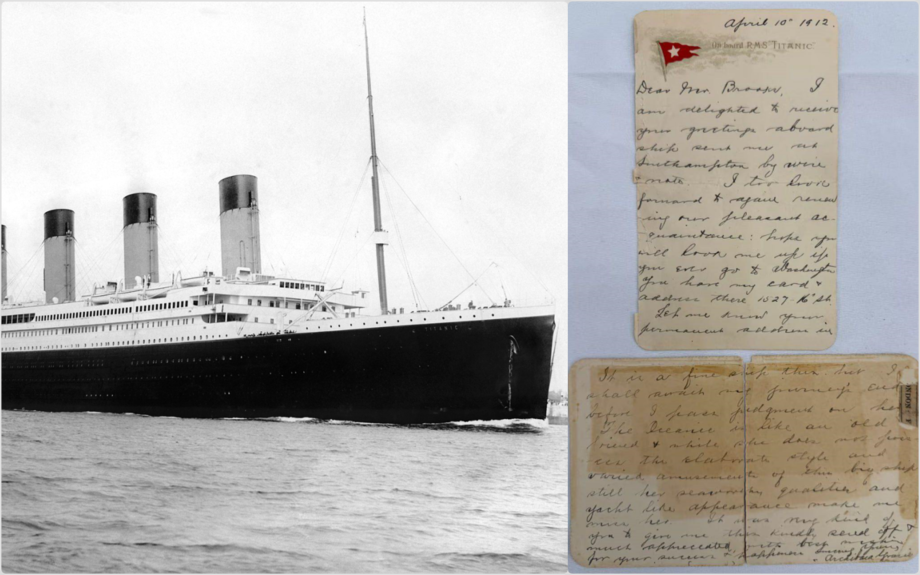 TITANIC
April 10th 1912.
On board R.M.S "TITANIC"
Dear Mr. I
am delighted to receive
your greetings aboard
ship sent me at
Southampton by wire
note. I too look
forward to again renew
ing our pleasant ac
quaintance: hope you
will look me up if
you ever go to Washington
You have my card &
address there 1527 16 St
Let me know your
permanent address in
It is a fine ship but I
shall await my journey's end
before I pass judgment on her
The Oceanic is like an old
friend & while she does not
the elaborate style and
varied amusements of this big ship
still her seaworthy qualities and
yacht like appearance make me
miss her. It was very kind of
you to give me this kindly send off &
much appreciated with best
for your success & happiness
Archibald